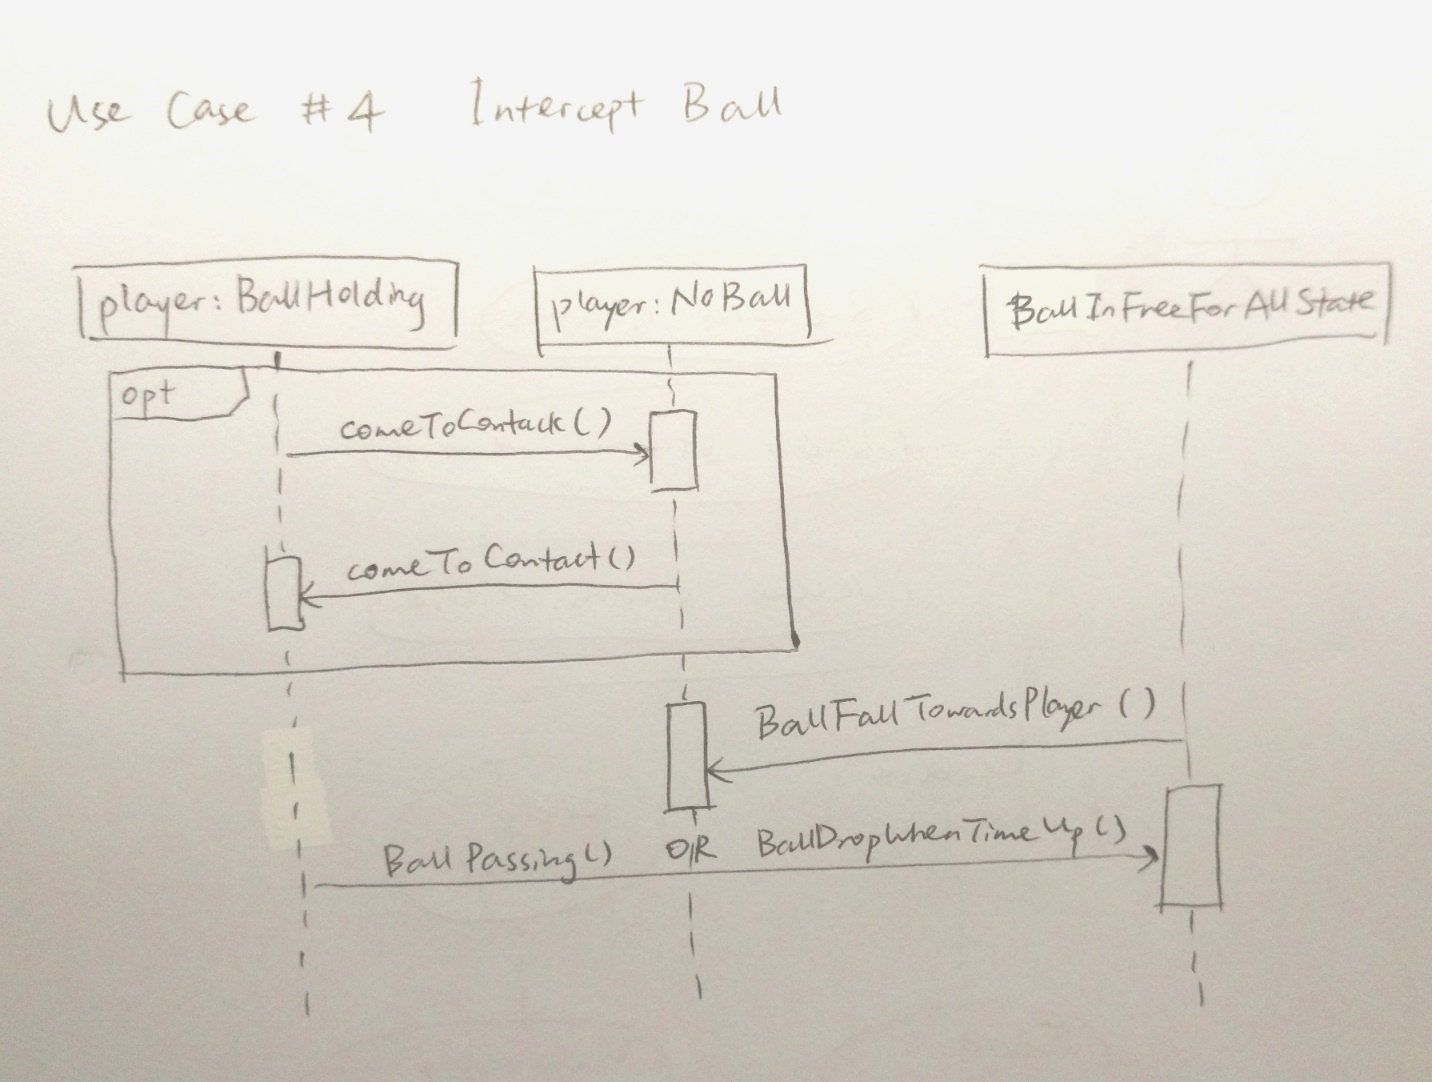 Use Case #4 Intercept Ball
player: BallHolding
player: NoBall
BallInFreeForAllState
opt
comeToContack()
comeToContact()
BallFallTowardsPlayer()
BallPassing() OR BallDropWhenTimeUp()